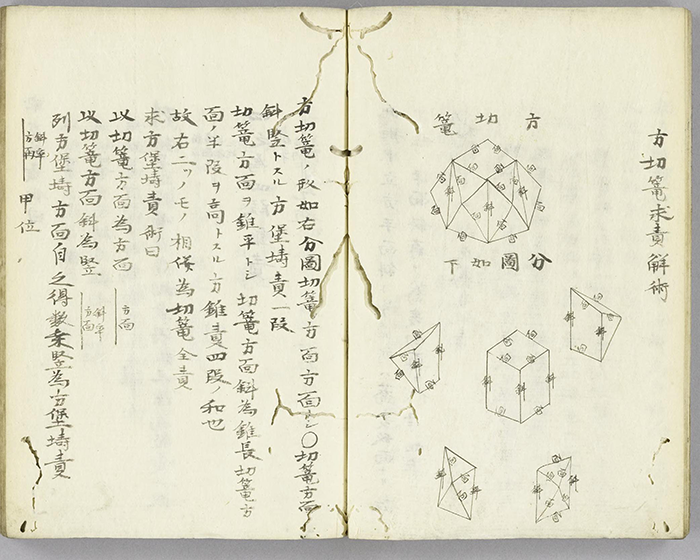 方切篭求責解術
方切篭
分圖如下
方切篭ノ形如右分圖切篭ノ方面方面トシ〇切篭方面
斜竪トスル方堡壔責一段
切篭方面ヲ錐平トシ切篭方面斜為錐長切篭方
面ノ半段ヲ高トスル方錐責四段ノ和也
故右二ッノモノ相併為切篭全責
求方堡壔責術曰
以切篭方面為方面 方面
以切篭方面斜為竪 斜率方面
列方堡壔方面自之得数乗竪為方堡壔責
斜率方再 甲位